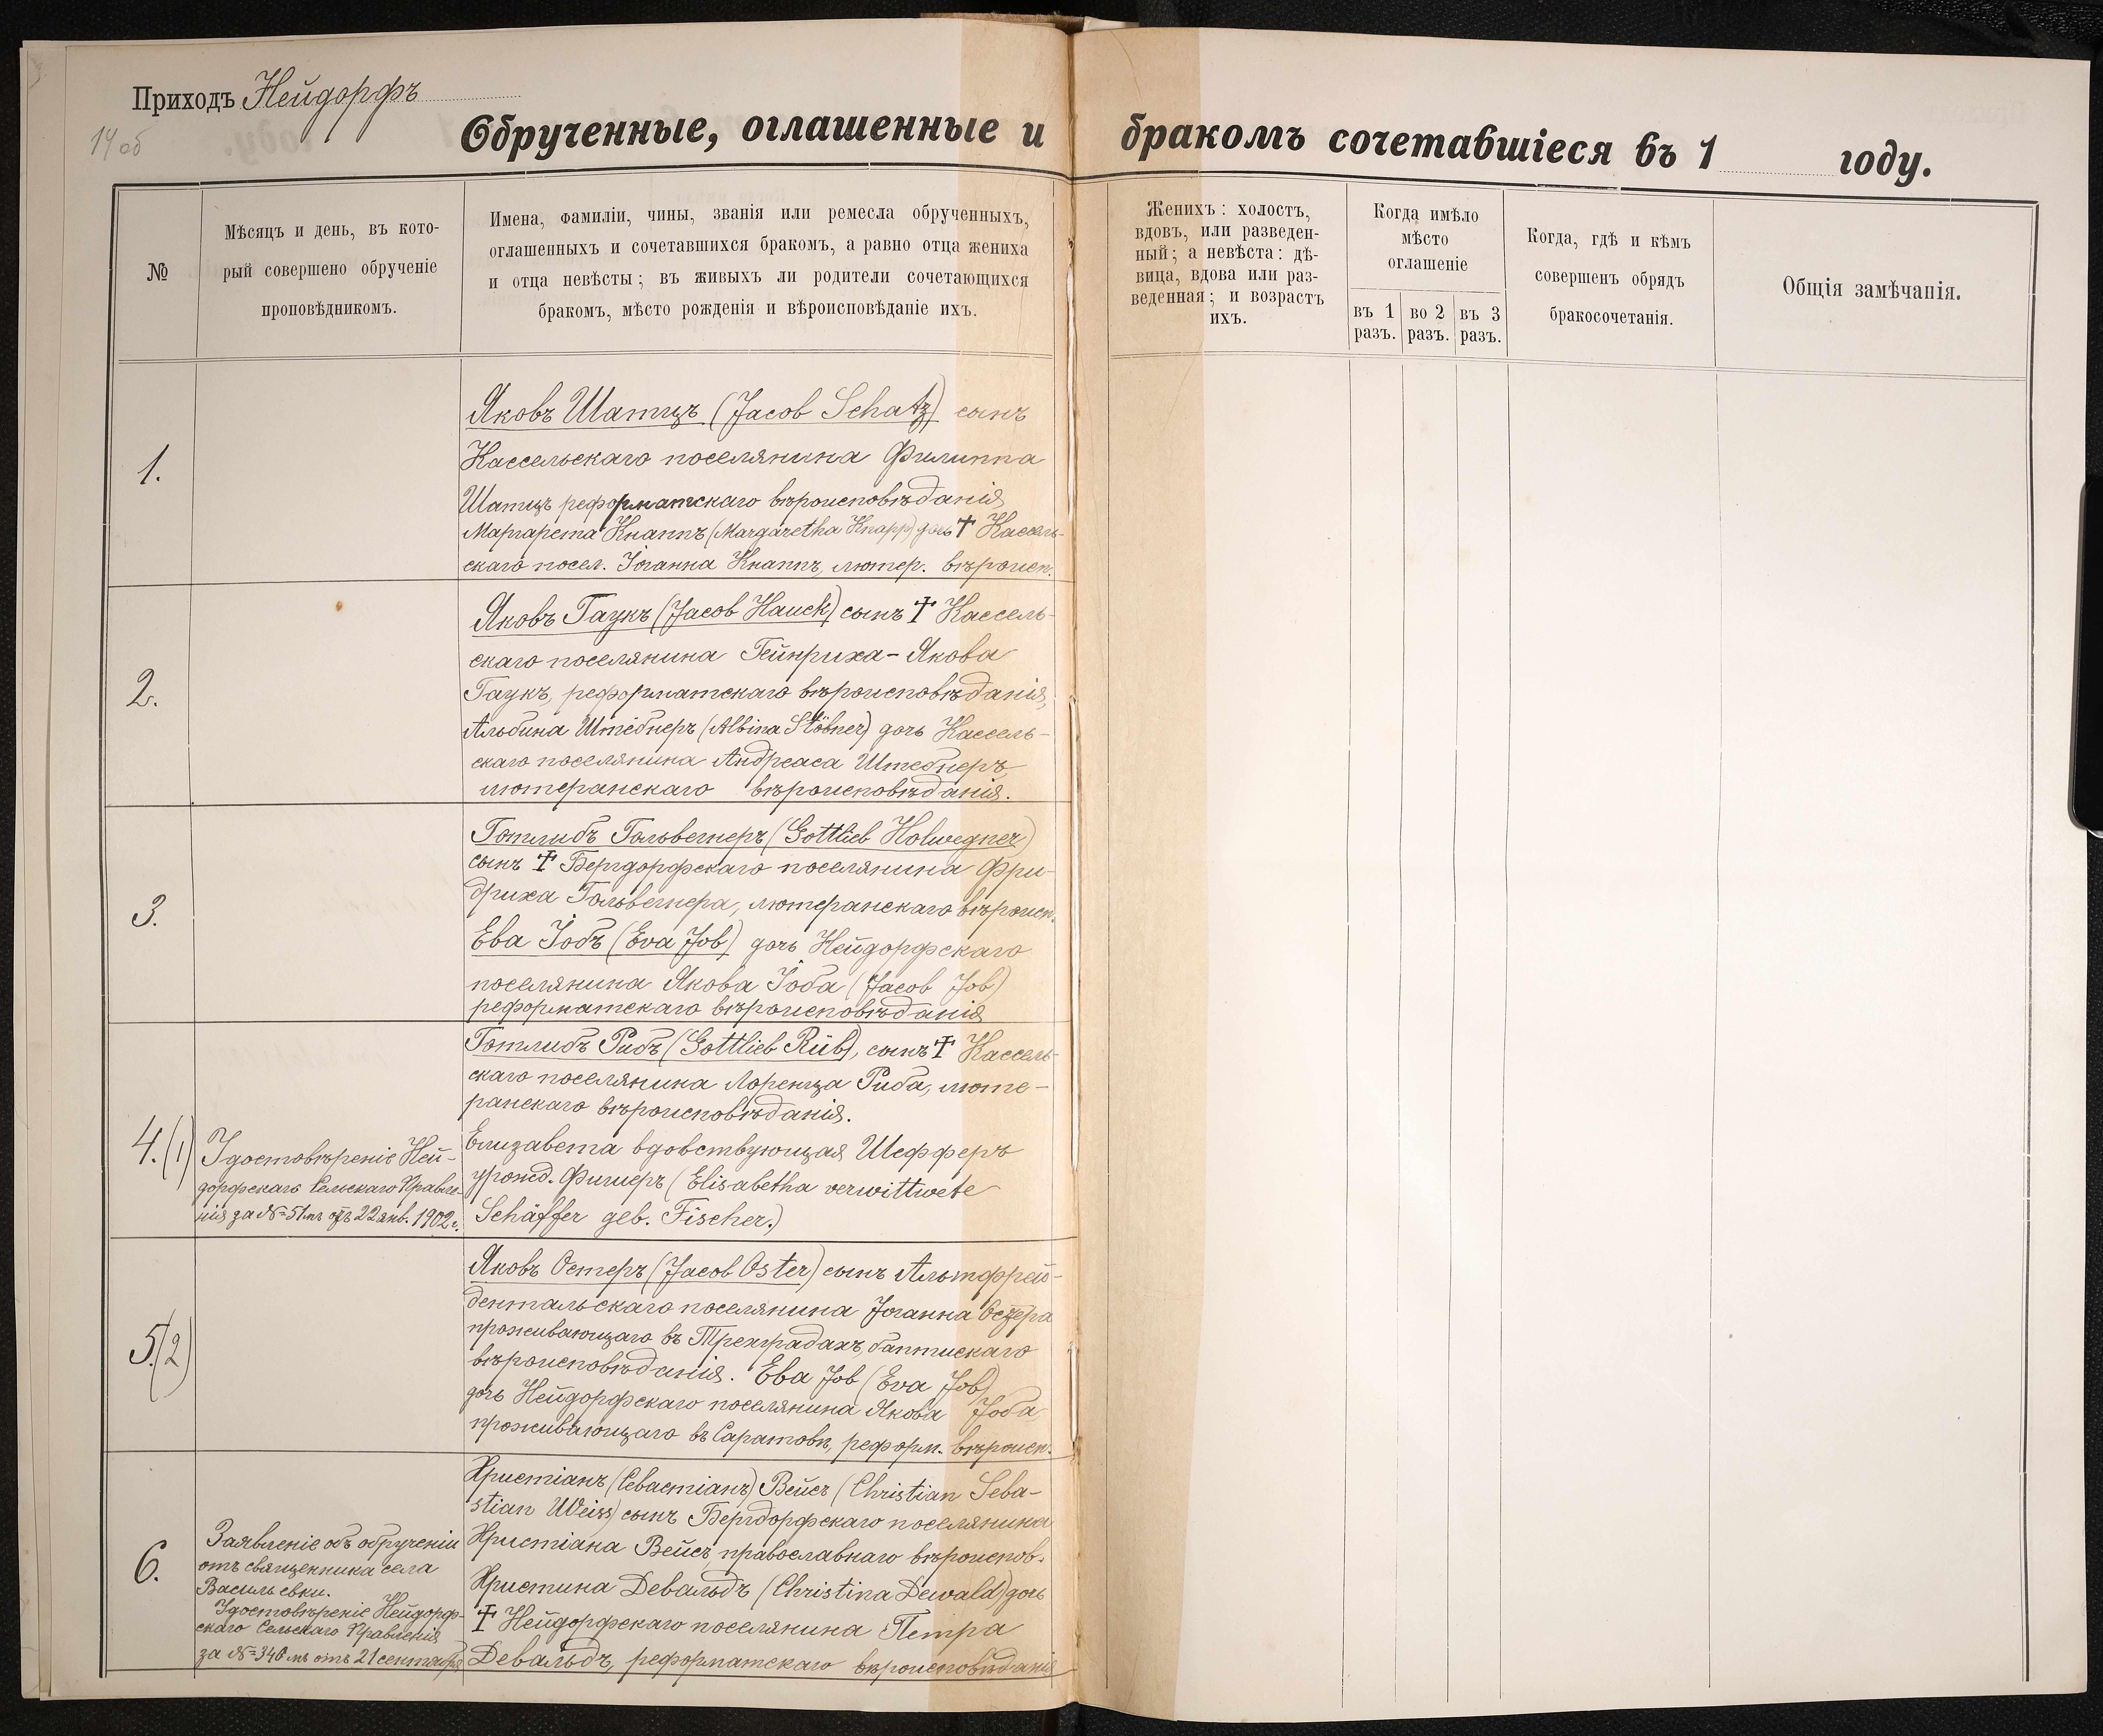 Приходъ Нейдорфъ
14 об
Обрученные, оглашенные и бракомъ сочетавшіеся въ 1 году.
№
Мѣсяцъ и день, въ кото-
рый совершено обрученіе
проповѣдникомъ.
Имена, фамиліи, чины, званія или ремесла обрученныхъ,
оглашенныхъ и сочетавшихся бракомъ, а равно отца жениха
и отца невѣсты; въ живыхъ ли родители сочетающихся
бракомъ, мѣсто рожденія и вѣроисповѣданіе ихъ.
Женихъ: холостъ,
вдовъ, или разведен-
ный; а невѣста: дѣ-
вица, вдова или раз-
веденная; и возрастъ
ихъ.
Когда имѣло
мѣсто
оглашеніе
въ 1 разъ.
во 2 разъ.
въ 3 разъ.
Когда, гдѣ и кѣмъ
совершенъ обрядъ
бракосочетанія.
Общія замѣчанія.
1.
Яковъ Шатцъ (Jacob Schatz) сынъ
Кассельскаго поселянина Филиппа
Шатцъ реформатскаго вѣроисповѣданія
Маргарета Кнаппъ (Margaretha Knapp) дочь † Кассель-
скаго посел. Іоганна Кнаппъ, лютер. вѣроисп.
2.
Яковъ Гаукъ (Jacob Hauck) сынъ † Кассель-
скаго поселянина Гейнриха-Якова
Гаукъ, реформатскаго вѣроисповѣданія,
Альбина Штебнеръ (Albina Stöbner) дочь Кассель-
скаго поселянина Андреаса Штебнеръ,
лютеранскаго вѣроисповѣданія.
3.
Готлибъ Гольвегнеръ (Gottlieb Holwegner)
сынъ † Бергдорфскаго поселянина Фри-
дриха Гольвегнера, лютеранскаго вѣроисп.
Ева Іобъ (Eva Job) дочь Нейдорфскаго
поселянина Якова Іоба (Jacob Job)
реформатскаго вѣроисповѣданія
4.(1)
Удостовѣреніе Ней-
дорфскаго Сельскаго Правле-
нія за №=51мъ отъ 22 янв. 1902 г.
Готлибъ Рибъ (Gottlieb Rüb), сынъ † Кассель-
скаго поселянина Лоренца Риба, люте-
ранскаго вѣроисповѣданія.
Елизавета вдовствующая Шефферъ
урожд. Фишеръ (Elisabetha verwittwete
Schäffer geb. Fischer.)
5.(2)
Яковъ Остеръ (Jacob Oster) сынъ Альтфрей-
дентальскаго поселянина Іоганна Остера
проживающаго въ Трехградахъ, баптискаго
вѣроисповѣданія. Ева Job (Eva Job)
дочь Нейдорфскаго поселянина Якова Іоба,
проживающаго въ Саратовѣ, реформ. вѣроисп.
6.
Заявленіе объ обрученіи
отъ священника села
Васильевки.
Удостовѣреніе Нейдорф-
скаго Сельскаго Правленія
за №=340мъ отъ 21 сентября
Христіанъ (Севастіанъ) Вейсъ (Christian Seba-
stian Weiss) сынъ Бергдорфскаго поселянина
Христіана Вейсъ, православнаго вѣроиспов.
Христина Девальдъ (Christina Dewald) дочь
† Нейдорфскаго поселянина Петра
Девальдъ, реформатскаго вѣроисповѣданія